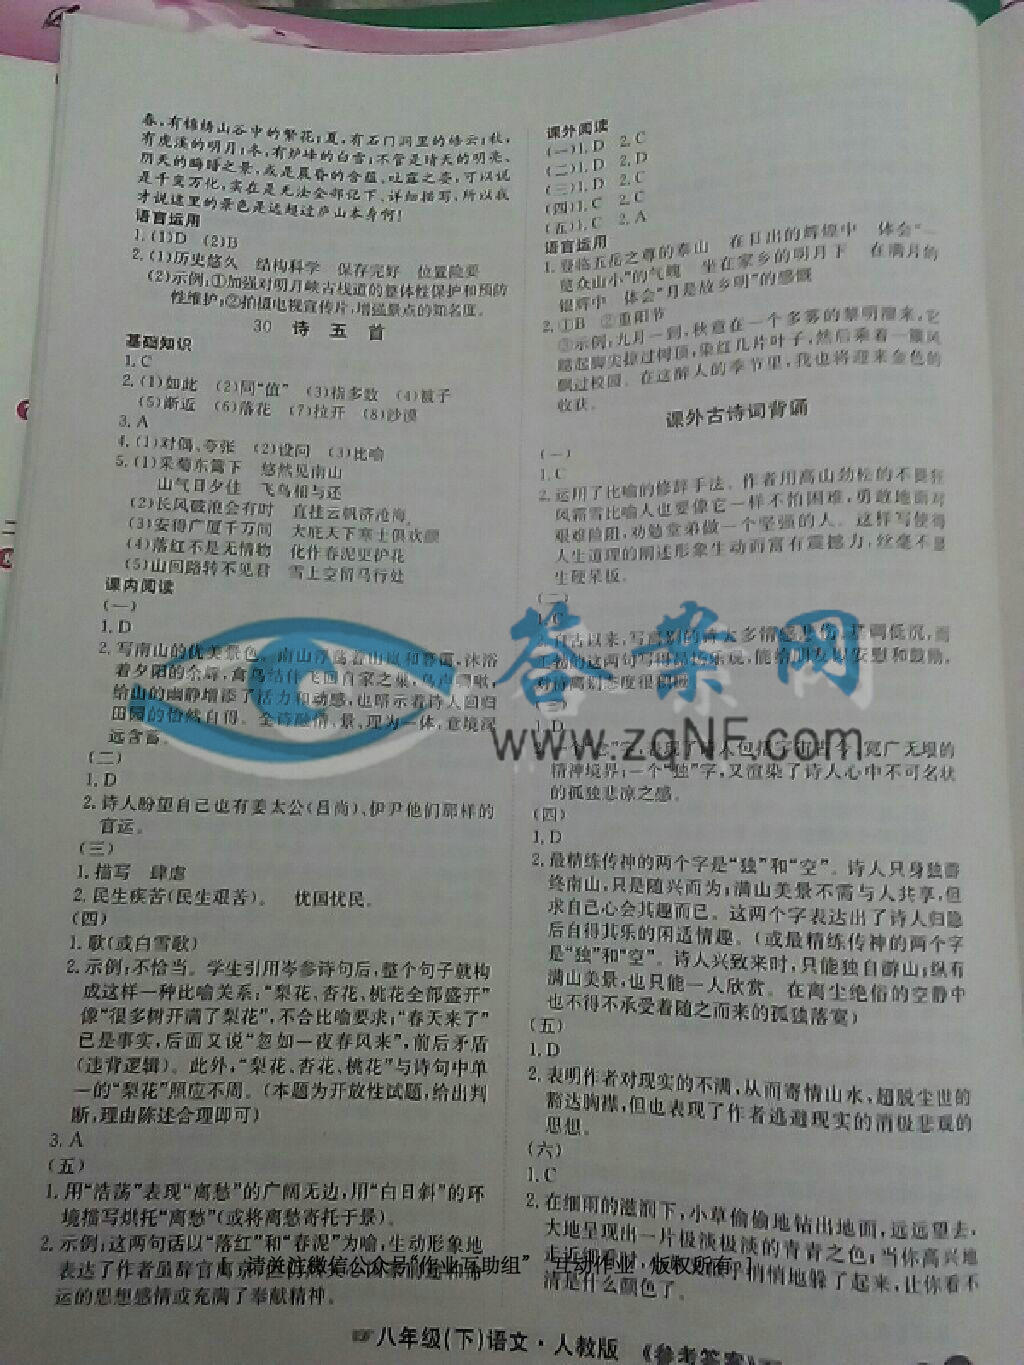 春,有锦绣山谷中的繁花;夏,有石门涧里的暗云;秋,
有虎溪的明月;冬,有炉峰的白雪;不管是晴天的明亮、
阴天的晦暗之景,或是晨昏的含蕴、吐露之姿,可以说
是千变万化,实在是无法全部记下、详细描写,所以我
才说这里的景色是远超过庐山本身呵!
语言运用
1.(1)D (2)B
2.(1)历史悠久 结构科学 保存完好 位置险要
(2)示例:①加强对明月峡古栈道的整体性保护和预防
性维护;②拍摄电视宣传片,增强景点的知名度。
30 诗五首
基础知识
1.C
2.(1)如此 (2)同“值” (3)指多数 (4)被子
(5)渐近 (6)落花 (7)拉开 (8)沙漠
3.A
4.(1)对偶、夸张 (2)设问 (3)比喻
5.(1)采菊东篱下 悠然见南山
山气日夕佳 飞鸟相与还
(2)长风破浪会有时 直挂云帆济沧海
(3)安得广厦千万间 大庇天下寒士俱欢颜
(4)落红不是无情物 化作春泥更护花
(5)山回路转不见君 雪上空留马行处
课内阅读
(一)
1.D
2.写南山的优美景色。南山浮荡着山岚和暮霭,沐浴
着夕阳的余辉,禽鸟结伴飞回自家之巢,鸟声啁啾,
给山的幽静增添了活力和动感,也暗示着诗人回归
田园的怡然自得。全诗融情、景、理为一体,意境深
远含蓄。
(二)
1.D
2.诗人盼望自己也有姜太公(吕尚)、伊尹他们那样的
官运。
(三)
1.描写 肆虐
2.民生疾苦(民生艰苦)。 忧国忧民。
(四)
1.歌(或白雪歌)
2.示例:不恰当。学生引用岑参诗句后,整个句子就构
成这样一种比喻关系:“梨花、杏花、桃花全部盛开”
像“很多树开满了梨花”,不合比喻要求;“春天来了”
已是事实,后面又说“忽如一夜春风来”,前后矛盾
(违背逻辑)。此外,“梨花、杏花、桃花”与诗句中单
一的“梨花”照应不周。(本题为开放性试题,给出判
断,理由陈述合理即可)
3.A
(五)
1.用“浩荡”表现“离愁”的广阔无边,用“白日斜”的环
境描写烘托“离愁”(或将离愁寄托于景)。
2.示例:这两句话以“落红”和“春泥”为喻,生动形象地
表达了作者虽辞官离京
运的思想感情或充满了奉献精神。
课外阅读
(一)1.D 2.C
(二)1.D 2.D
(三)1.D 2.C
(四)1.C 2.C
(五)1.C 2.A
语言运用
1.登临五岳之尊的泰山 在日出的辉煌中 体会“一
览众山小”的气魄 坐在家乡的明月下 在满月的
银辉中 体会“月是故乡明”的感慨
2.①B ②重阳节
③示例:九月一到,秋意在一个多雾的黎明溜来,它
踮起脚尖掠过树顶,染红几片叶子,然后乘着一簇风
飘过校园。在这醉人的季节里,我也将迎来金色的
收获。
课外古诗词背诵
(一)
1.C
2.运用了比喻的修辞手法。作者用高山劲松的不畏狂
风霜雪比喻人也要像它一样不怕困难,勇敢地面对
艰难险阻,劝勉堂弟做一个坚强的人。这样写使得
人生道理的阐述形象生动而富有震撼力,丝毫不显
生硬呆板。
(二)
1.C
2.自古以来,写离别的诗大多情感悲伤,基调低沉,而
王勃的这两句写得昂扬乐观,能给朋友以安慰和鼓励,
对待离别态度很积极
(三)
1.D
2.一个“念”字,表现了诗人包括了宙古今、宽广无垠的
精神境界;一个“独”字,又渲染了诗人心中不可名状
的孤独悲凉之感。
(四)
1.D
2.最精练传神的两个字是“独”和“空”。诗人只身独游
终南山,只是随兴而为;满山美景不需与人共享,但
求自己心会其趣而已。这两个字表达出了诗人归隐
后自得其乐的闲适情趣。(或最精练传神的两个字
是“独”和“空”。诗人兴致来时,只能独自游山;纵有
满山美景,也只能一人欣赏。在离尘绝俗的空静中
也不得不承受着随之而来的孤独落寞)
(五)
1.D
2.表明作者对现实的不满,从而寄情山水,超脱尘世的
豁达胸襟,但也表现了作者逃避现实的消极悲观的
思想。
(六)
1.C
2.在细雨的滋润下,小草偷偷地钻出地面,远远望去,
大地呈现出一片极淡极淡的青青之色;当你高兴地
走近细看时,悄悄地躲了起来,让你看不
清是什么颜色了。
答案网
www.zqNF.com
[ 请关注微信公众号“作业互助组” 互动作业 版权所有 ]
八年级(下)语文·人教版 《参考答案》